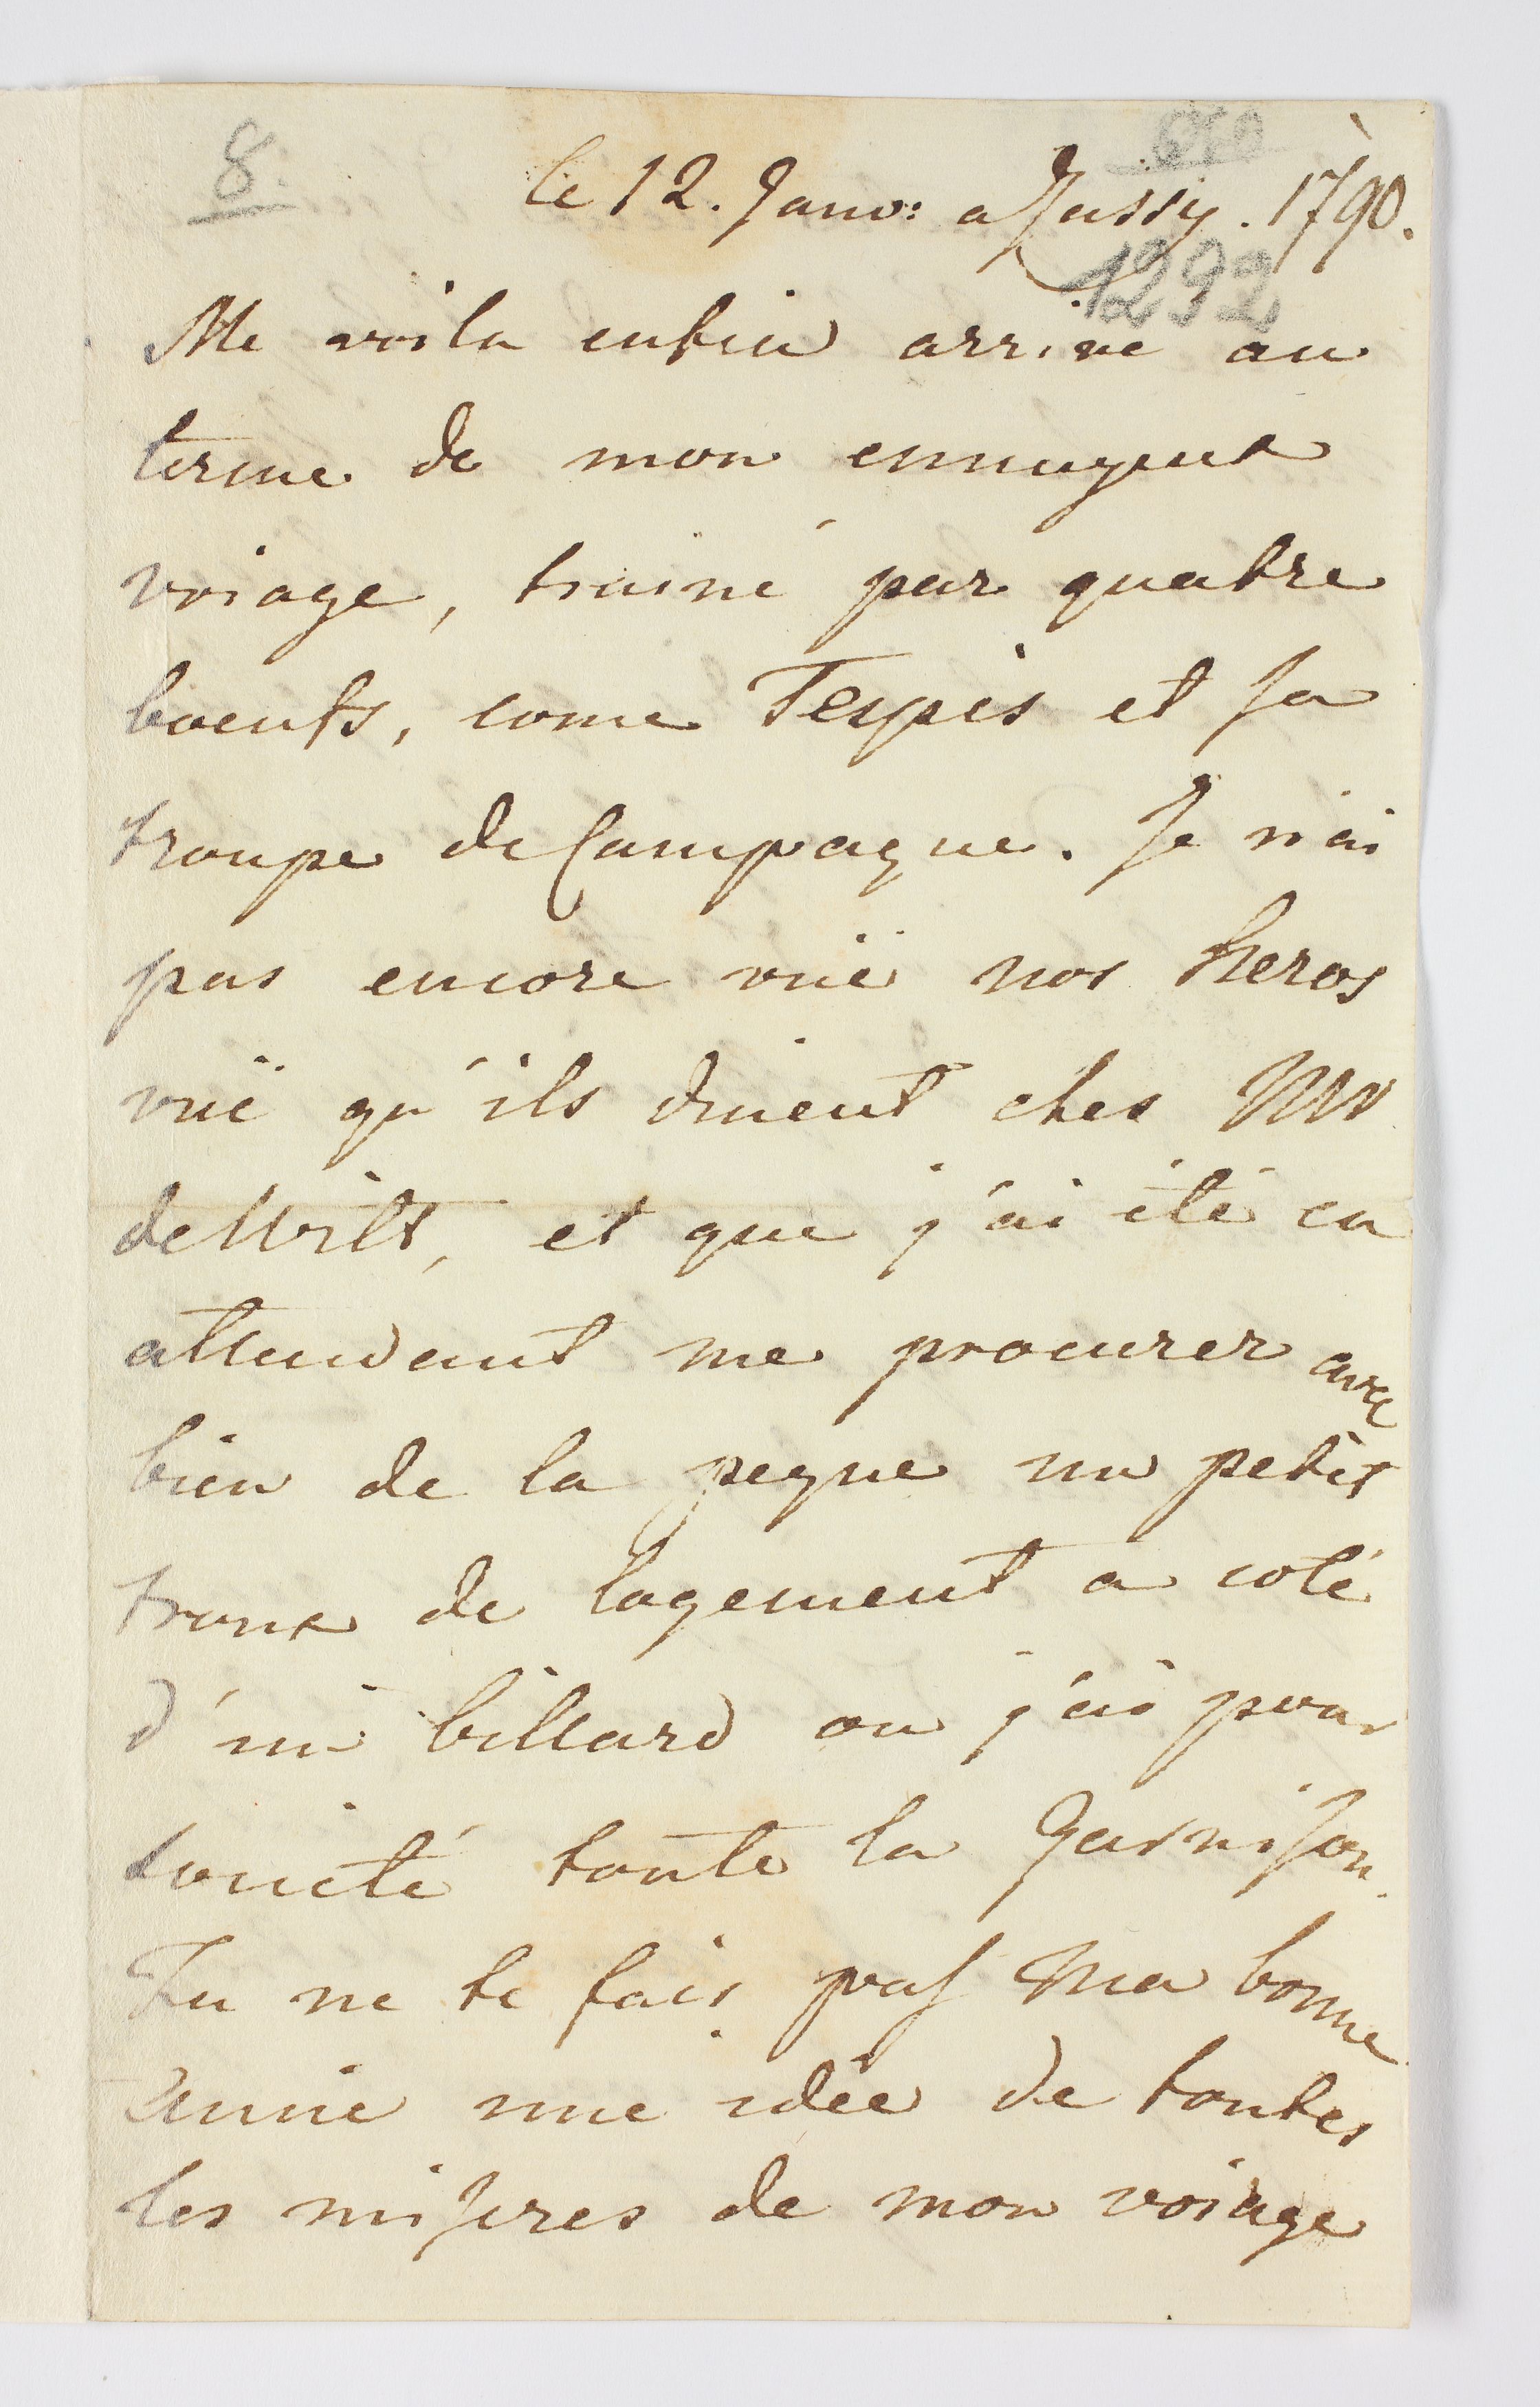 8.
le 12. Janv: a Jassy. 1790.
1292
Me voila enfin arrivé au
terme de mon ennuyeux
voiage, trainé par quatre
boeufs, come Tespis et sa
troupe de Campagne. Je n'ai
pas encore vuë nos heros
vuë qu'ils dinent ches Mr
de Witt, et que j'ai été en
attendant me procurer avec
bien de la peyne un petit
troux de logement a coté
d'un billard ou j'ai pour
societé toute la Garnison.
Tu ne te fais pas Ma bonne
Amie une idée de toutes
les miseres de mon voiage